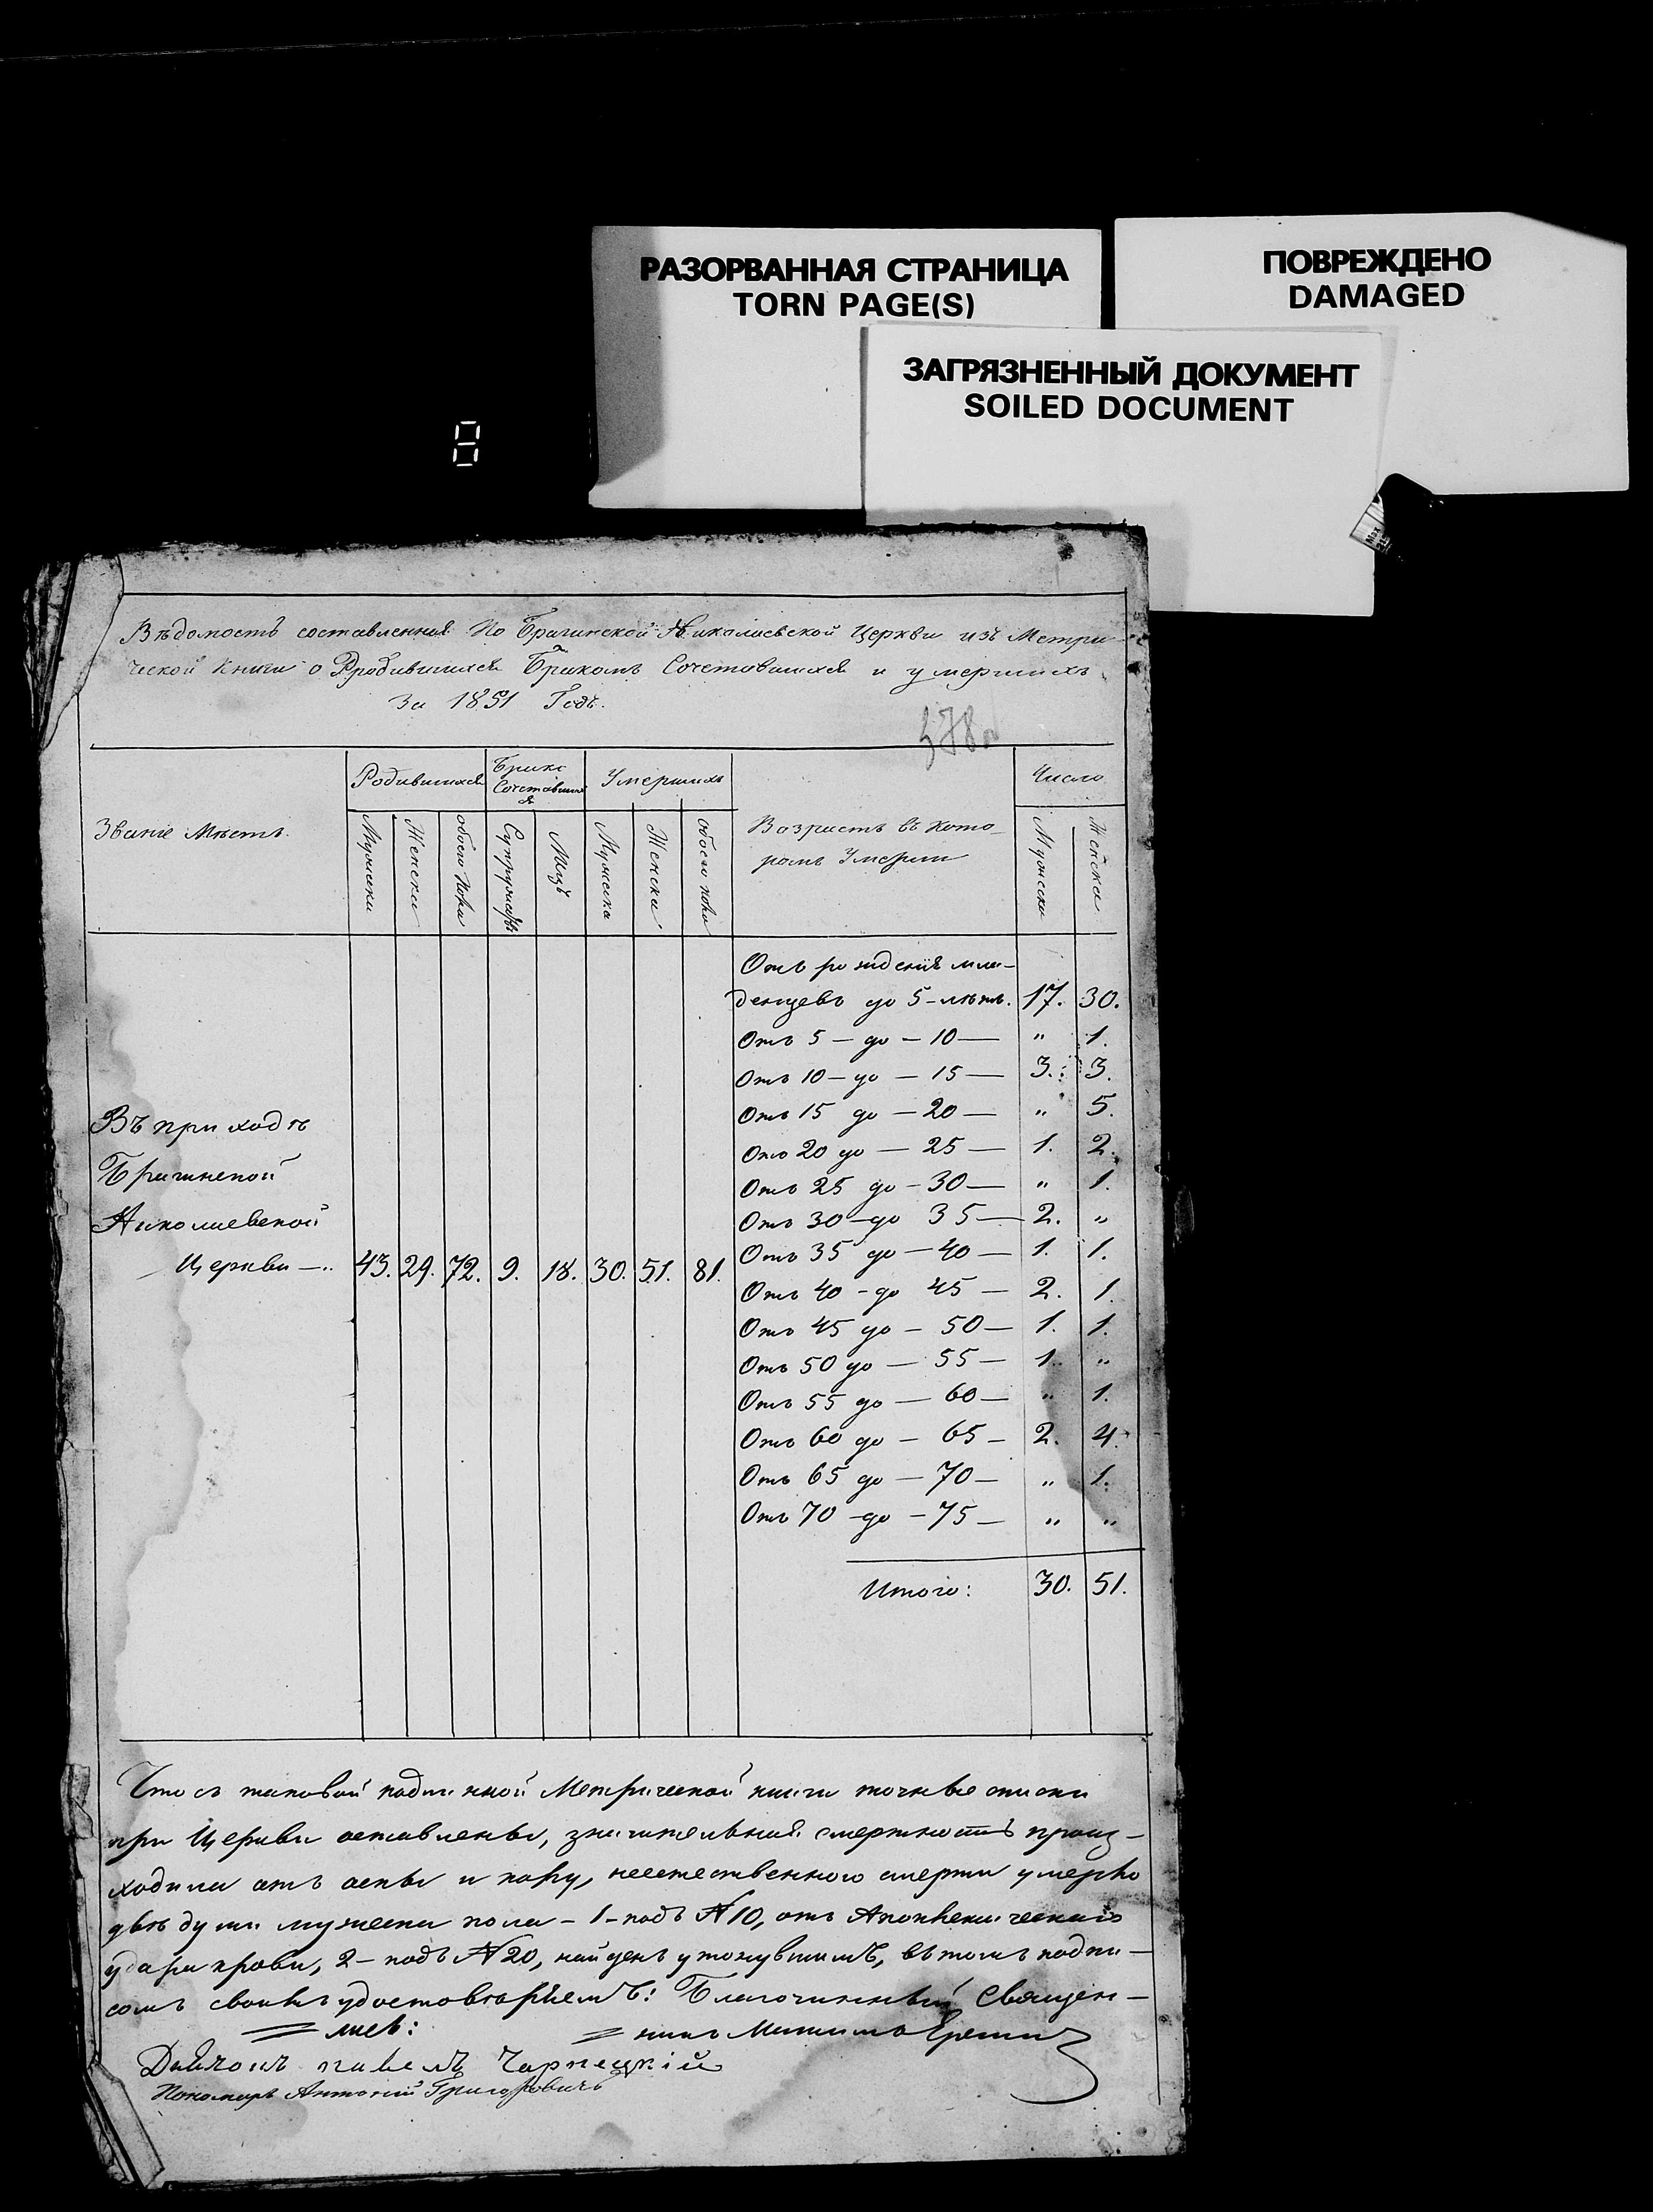 РАЗОРВАННАЯ СТРАНИЦА
TORN PAGE(S)
ПОВРЕЖДЕНО
DAMAGED
ЗАГРЯЗНЕННЫЙ ДОКУМЕНТ
SOILED DOCUMENT
Вѣдомость составленная По Брагинской Николаевской Церкви изъ Метри-
ческой Книги о Рродившихся Бракомъ Сочетовшихся и умершихъ
За 1851 Годъ.
578
Званіе Мѣстъ.
Родившихся
Брако Сочетавших
ся
Умершихъ
Возрастъ въ кото-
ромъ Умерли
Число
Мужеска
Женска
обоего пола
Супружествъ
Лицъ
Мужеска
Женска
обоего пола
Мужеска
Женска
Отъ рожденія мла-
денцевъ до 5-лѣтъ. 17. 30.
Отъ 5 — до — 10 — " 1.
Отъ 10 — до — 15 — 3. 3.
Отъ 15 до — 20 — " 5.
Отъ 20 до — 25 — 1. 2.
Отъ 25 до — 30 — " 1.
Отъ 30 — до 35 — 2. "
Отъ 35 до — 40 — 1. 1.
Отъ 40 - до 45 — 2. 1.
Отъ 45 до — 50 — 1. 1.
Отъ 50 до — 55 — 1. "
Отъ 55 до — 60 — " 1.
Отъ 60 до — 65 — 2. 4.
Отъ 65 до — 70 — " 1.
Отъ 70 — до — 75 — " "
Итого: 30. 51.
Въ приходѣ
Брагинской
Николаевской
Церкви — 43. 29. 72. 9. 18. 30. 51. 81.
Что съ таковой подлинной Метрической книги точные списки
при Церкви оставлены, значительная смертность проиц-
ходила отъ оспы и кору, неестественного смерти умерло
двѣ души мужеска пола - 1 - подъ № 10, отъ Апоплексическаго
удара крови, 2 - подъ № 20, найденъ утонувшимъ, въ томъ подпи-
сомъ своимъ удостовѣряемъ: Благочинный Священ-
никъ
Дьяконъ Павелъ Чарнецкій
Пономарь Антоній Григоровичъ